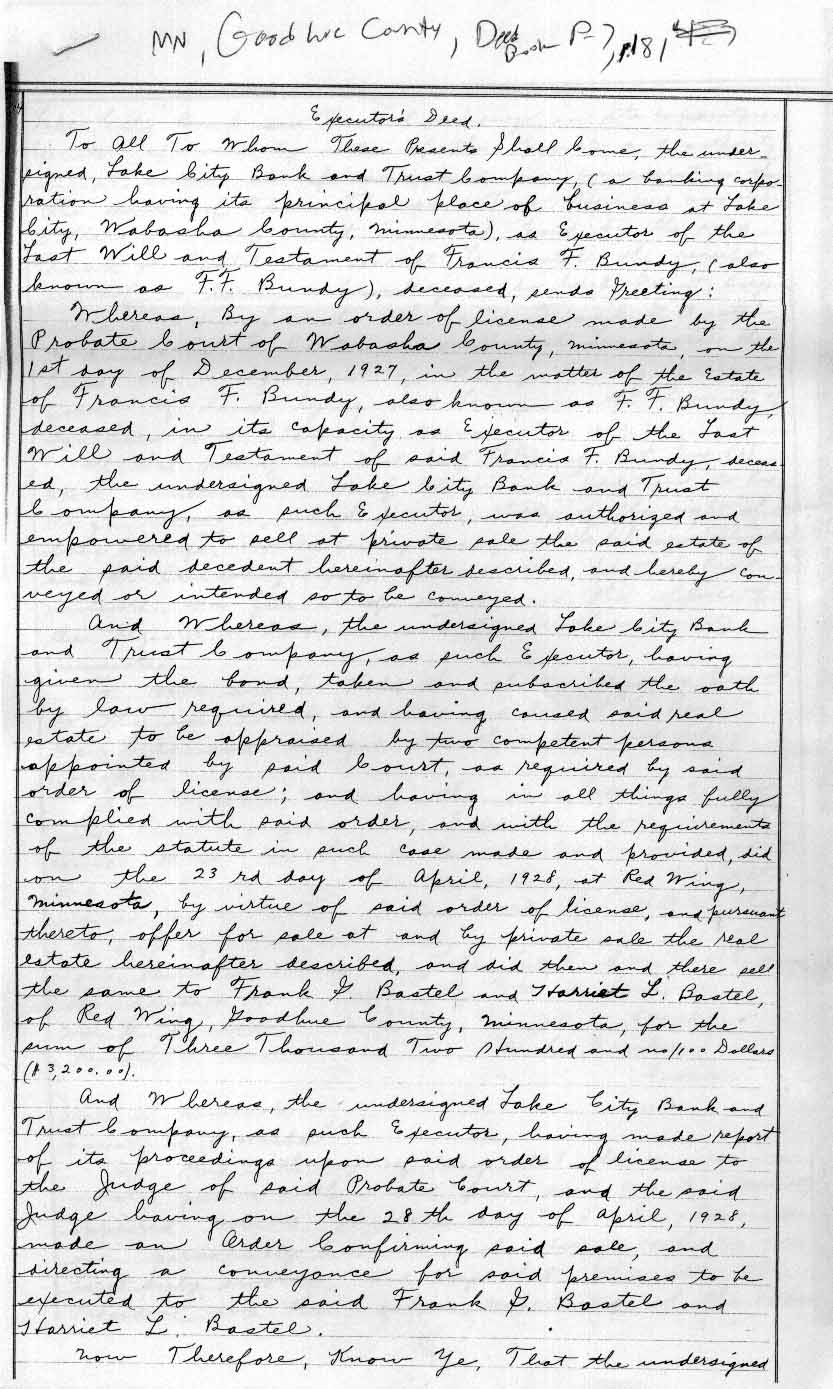 MN, Goodhue County, Deed Book P-7, p. 181,
Executor's Deed.
To All To Whom These Presents Shall Come, the under-
signed, Lake City Bank and Trust Company, (a banking corpo-
ration having its principal place of business at Lake
City, Wabasha County, Minnesota), as Executor of the
Last Will and Testament of Francis F. Bundy, (also
known as F.F. Bundy), deceased, sends Greeting:
Whereas, By an order of license made by the
Probate Court of Wabasha County, Minnesota, on the
1st day of December, 1927, in the matter of the Estate
of Francis F. Bundy, also known as F. F. Bundy,
deceased, in its capacity as Executor of the Last
Will and Testament of said Francis F. Bundy, deceas-
ed, the undersigned Lake City Bank and Trust
Company, as such Executor, was authorized and
empowered to sell at private sale the said estate of
the said decedent hereinafter described, and hereby con-
veyed or intended so to be conveyed.
And Whereas, the undersigned Lake City Bank
and Trust Company, as such Executor, having
given the bond, taken and subscribed the oath
by law required, and having caused said real
estate to be appraised by two competent persons
appointed by said Court, as required by said
order of license; and having in all things fully
complied with said order, and with the requirements
of the statute in such case made and provided, did
on the 23 rd day of April, 1928, at Red Wing,
Minnesota, by virtue of said order of license, and pursuant
thereto, offer for sale at and by private sale the real
estate hereinafter described, and did then and there sell
the same to Frank G. Bastel and Harriet L. Bastel,
of Red Wing, Goodhue County, Minnesota, for the
sum of Three Thousand Two Hundred and no/100 Dollars
($3,200.00).
And Whereas, the undersigned Lake City Bank and
Trust Company, as such Executor, having made report
of its proceedings upon said order of license to
the Judge of said Probate Court, and the said
Judge having on the 28 th day of April, 1928,
made an Order Confirming said sale, and
directing a conveyance for said premises to be
executed to the said Frank G. Bastel and
Harriet L. Bastel.
Now Therefore, Know Ye, That the undersigned